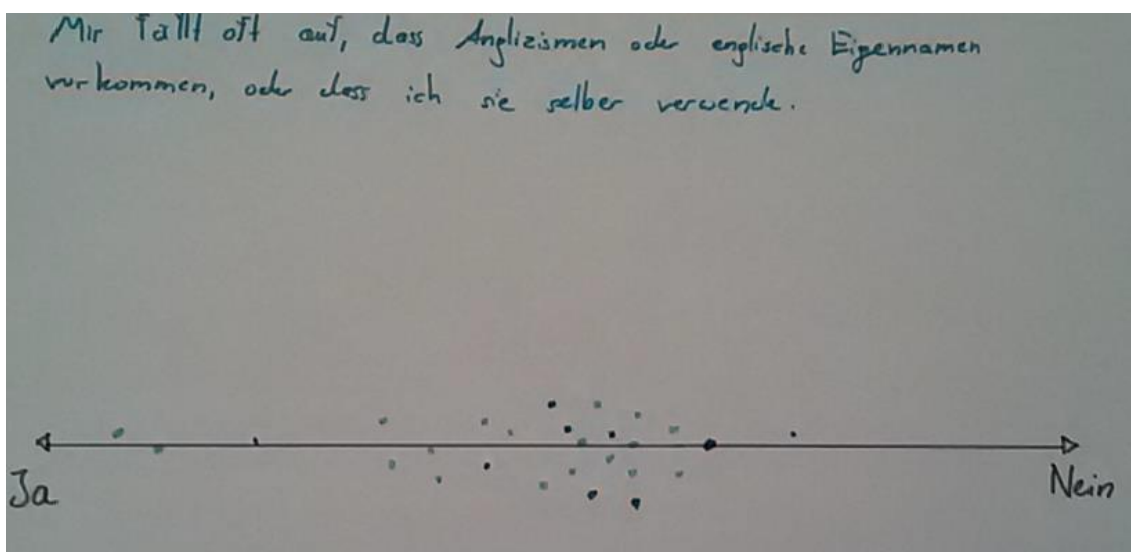 Mir fällt oft auf, dass Anglizismen oder englische Eigennamen
vorkommen, oder dass ich sie selber verwende.
Ja
Nein